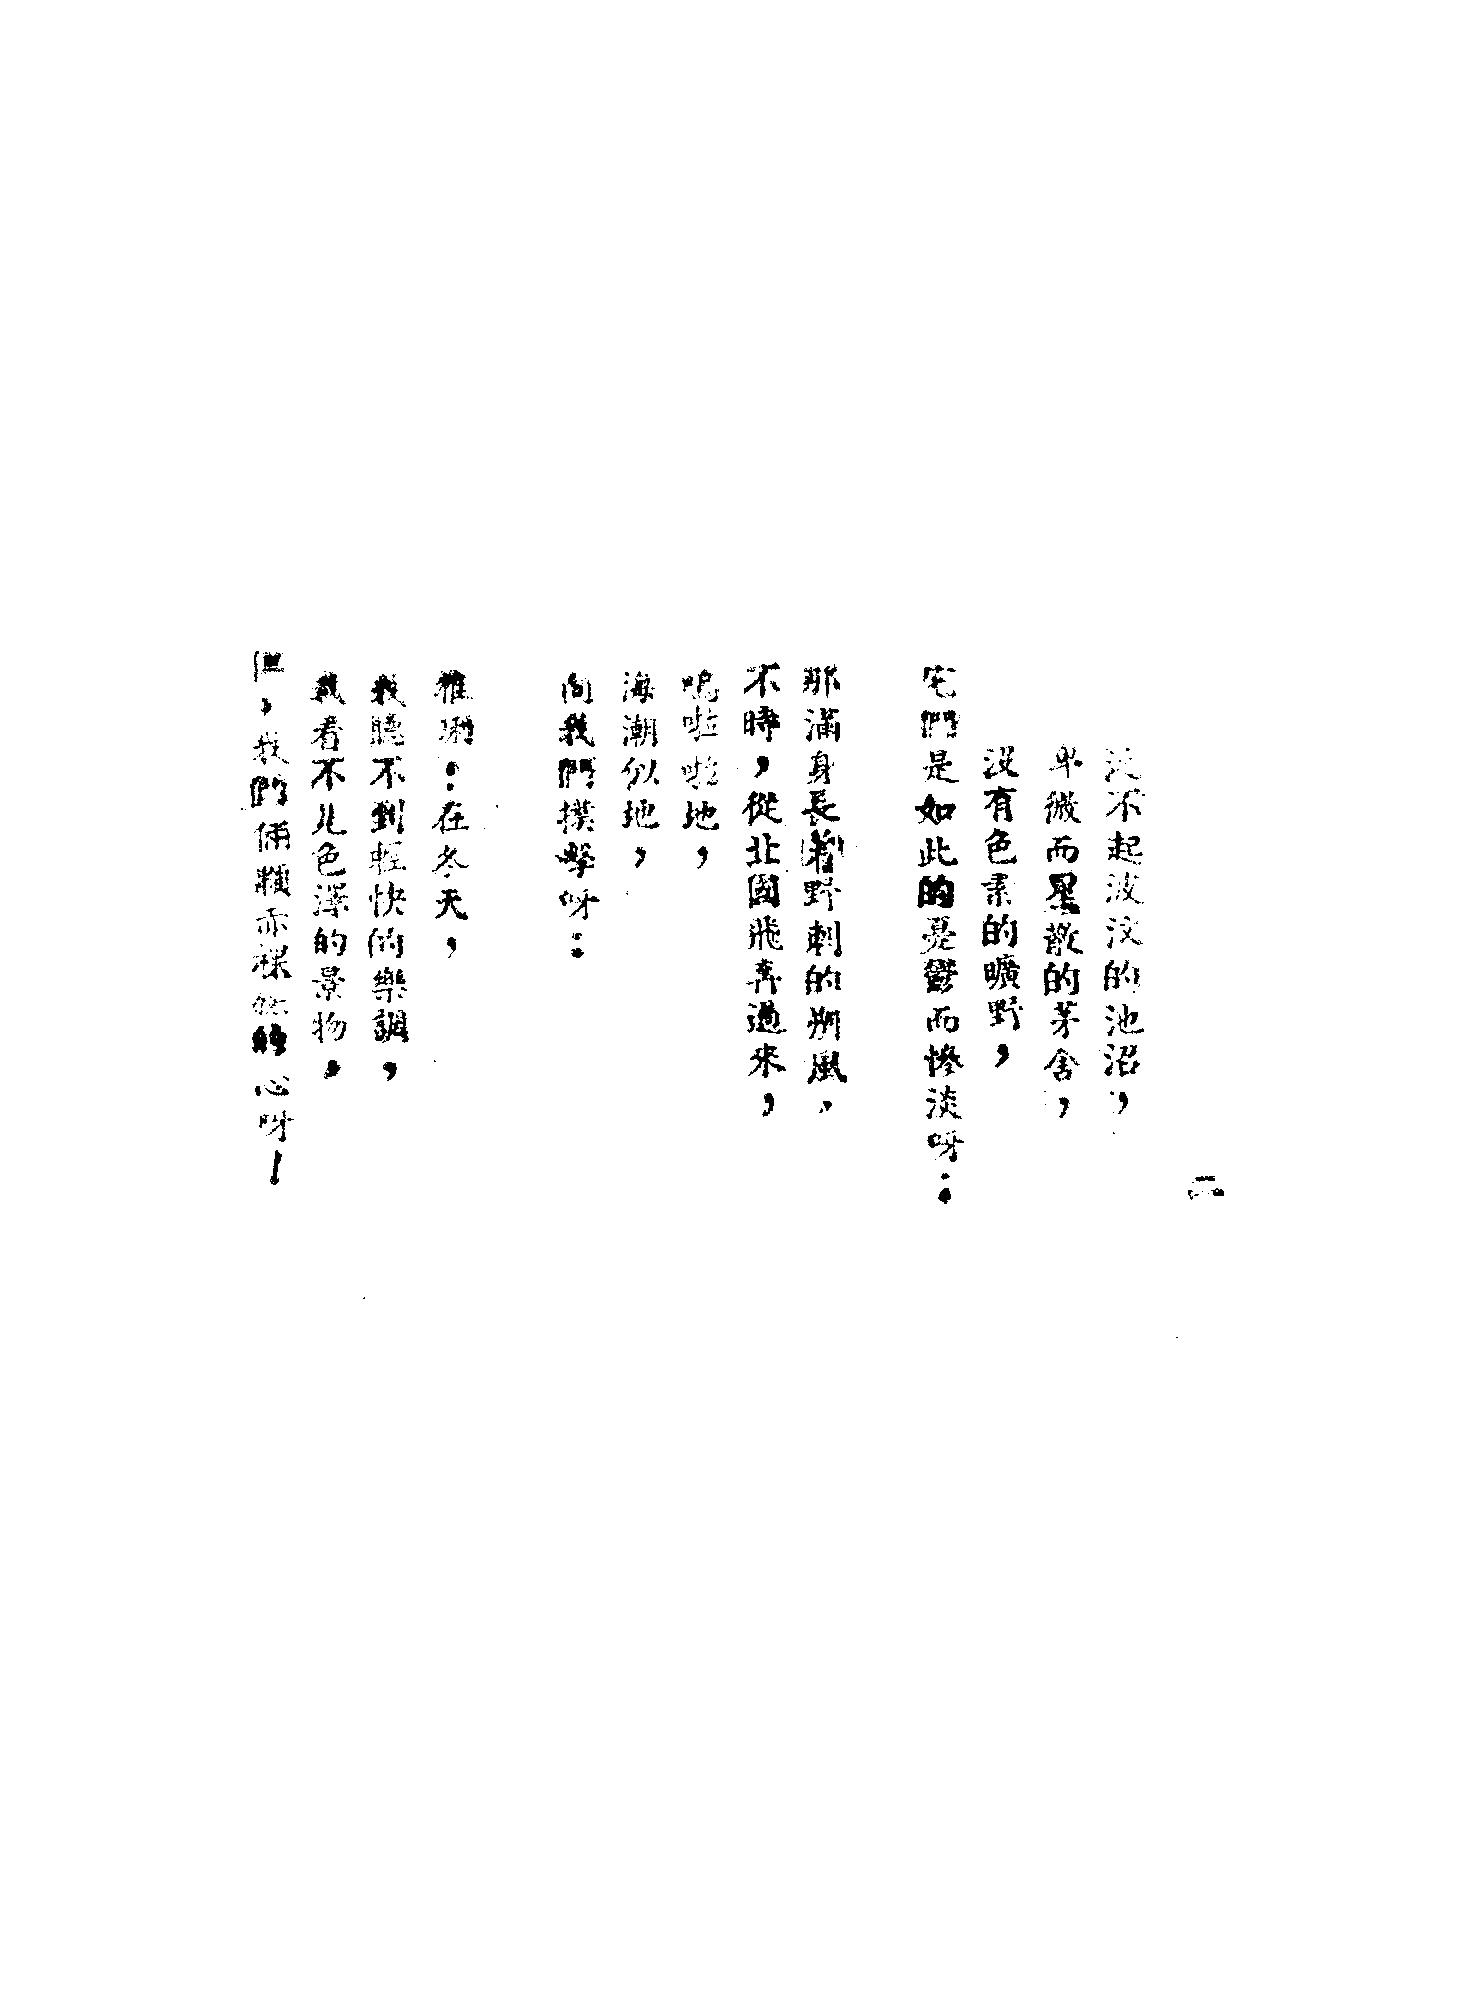 二
泛不起波汶的池沼，
卑微而星散的茅舍，
沒有色素的曠野，
宅們是如此的憂鬱而慘淡呀：
那滿身長着野刺的朔風，
不時，從北國飛奔過來，
嗚啦啦地，
海潮似地，
向我們撲擊呀：
雅琍：在冬天，
我聽不到輕快的樂調，
我看不見色澤的景物，
但，我們倆顆赤裸裸的心呀！